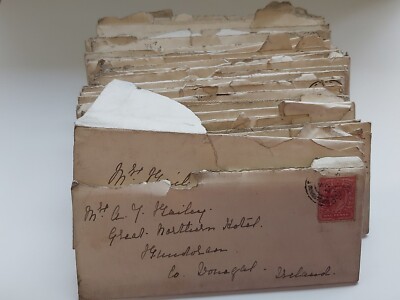 Mrs Hail
Mrs A. Y. Hailey.
Great Northern Hotel.
Bundoran
Co Donegal - Ireland.